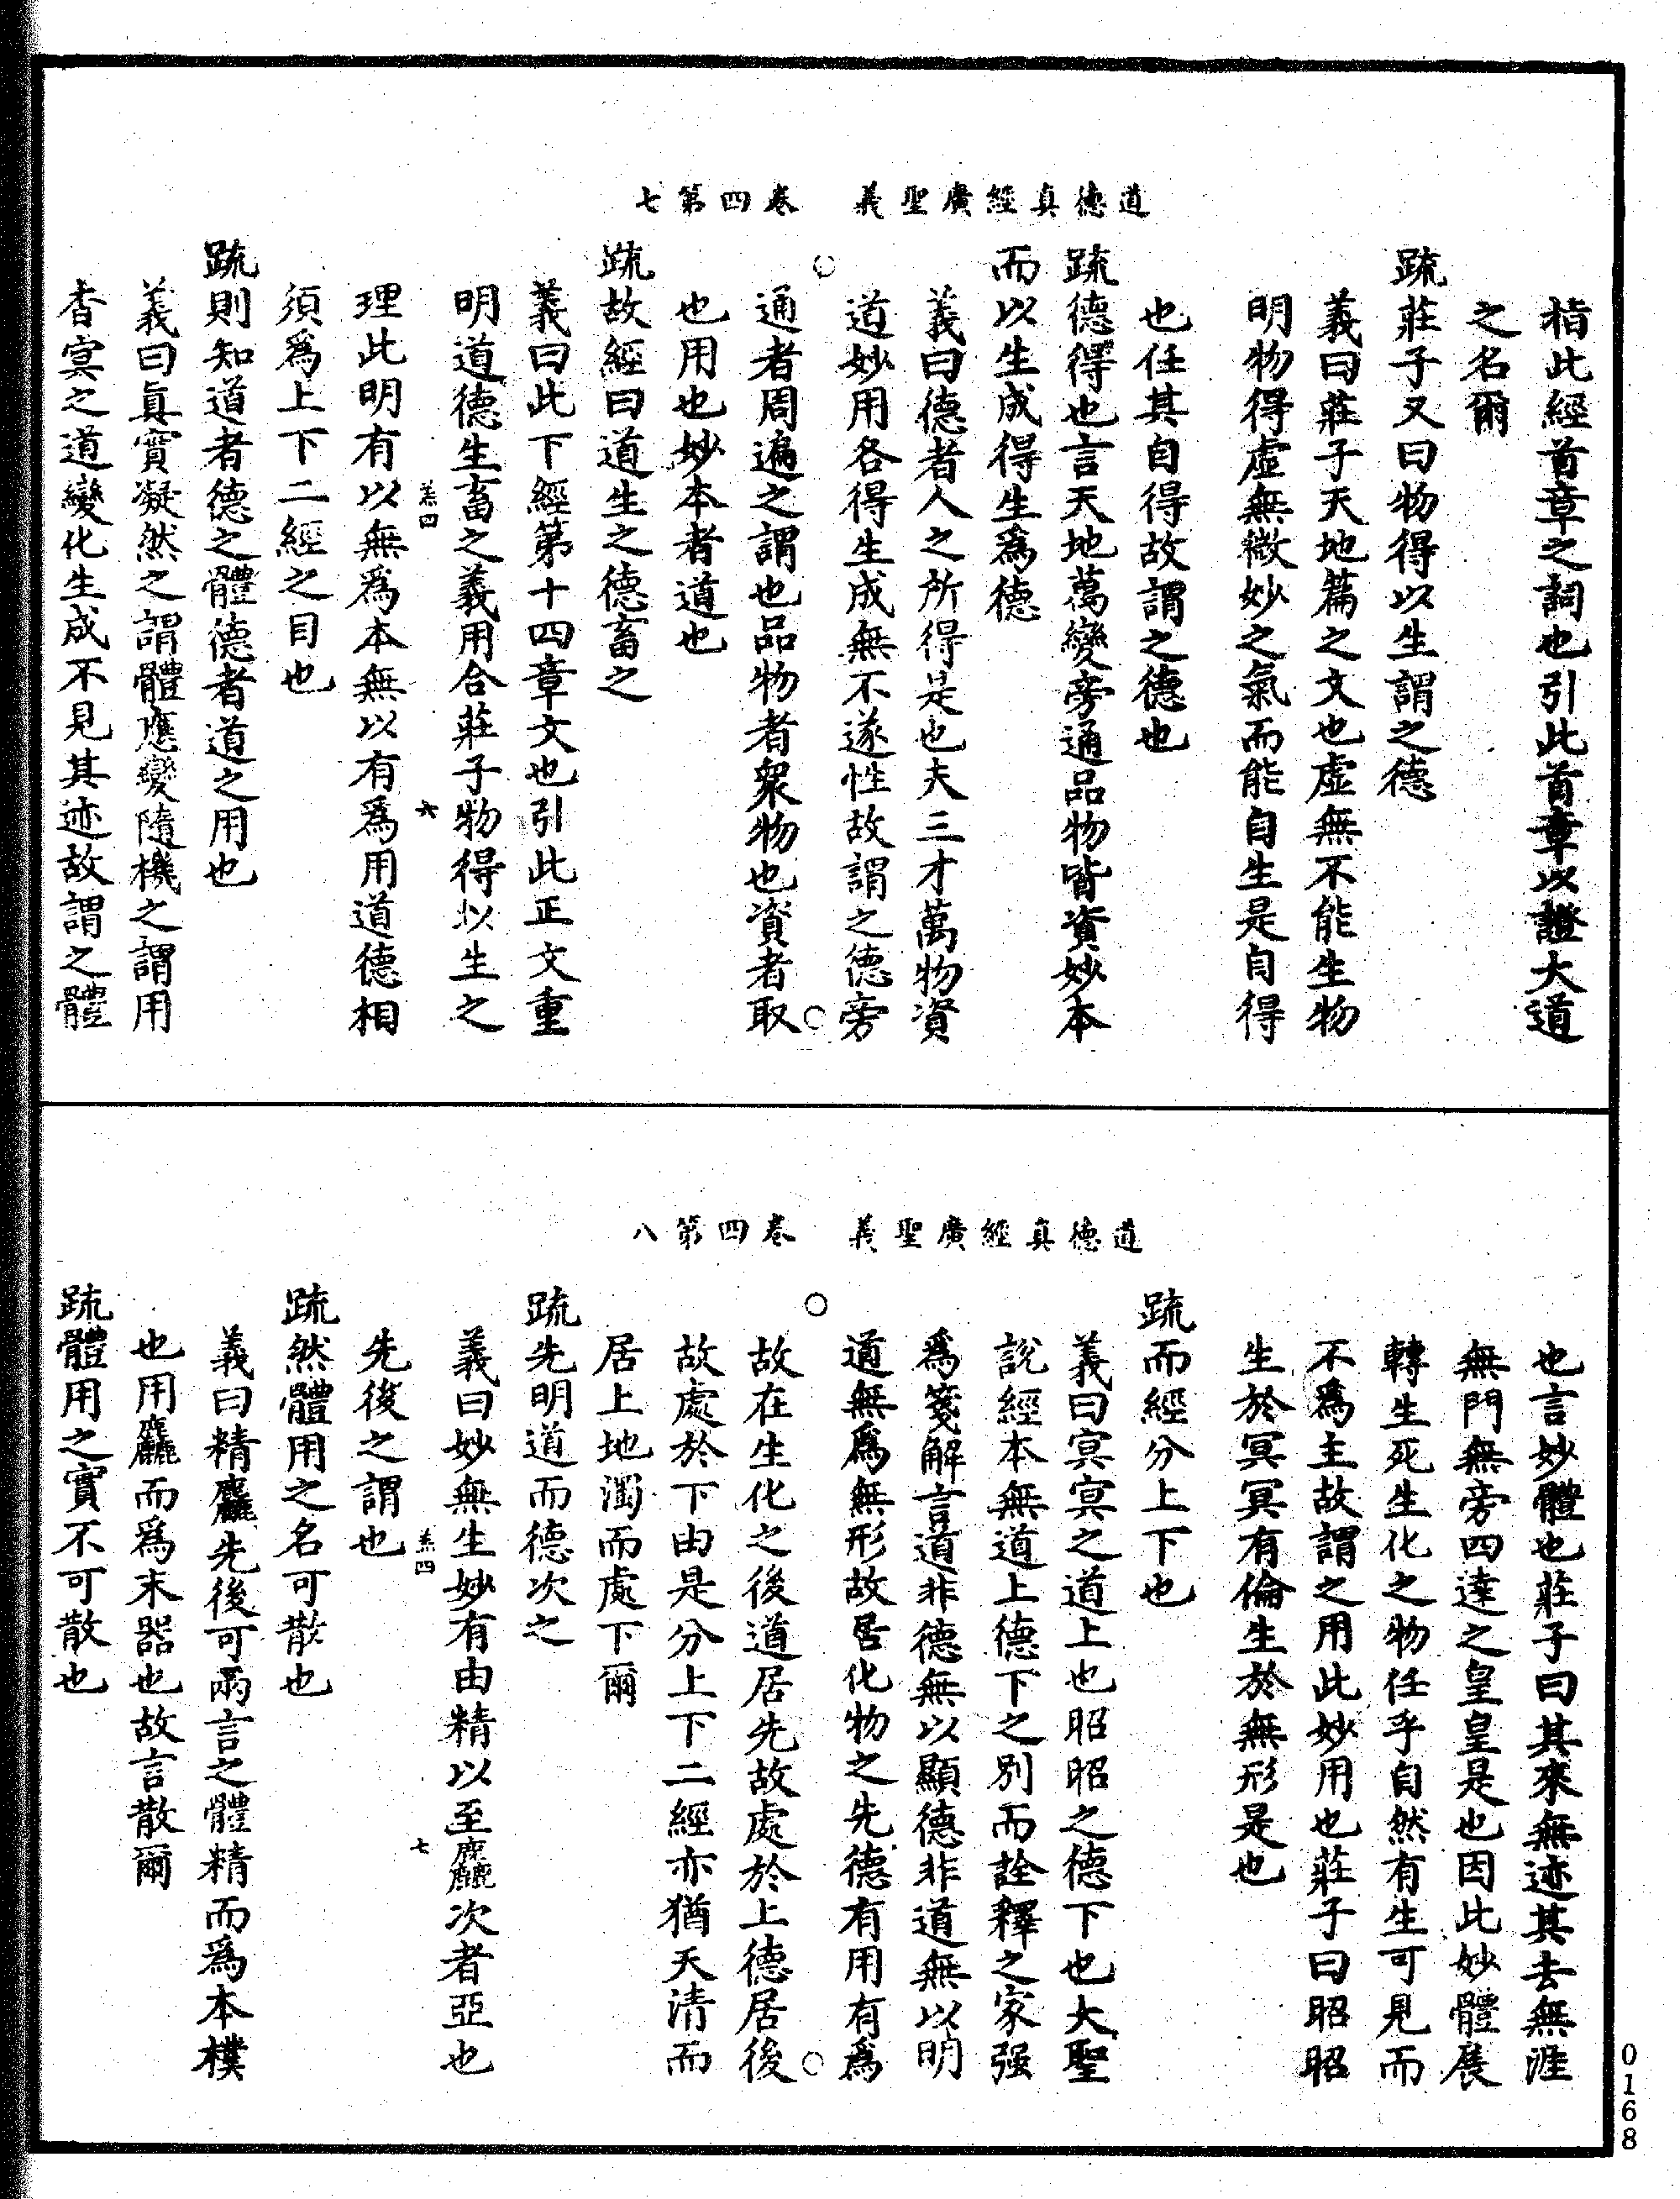 道德真經廣聖義　卷四第七
指此經首章之詞也引此首章以證大道
之名爾
疏莊子又曰物得以生謂之德
義曰莊子天地篇之文也虛無不能生物
明物得虛無微妙之氣而能自生是自得
也任其自得故謂之德也
疏德得也言天地萬變旁通品物皆資妙本
而以生成得生爲德
義曰德者人之所得是也夫三才萬物資
道妙用各得生成無不遂性故謂之德旁
通者周遍之謂也品物者衆物也資者取
也用也妙本者道也
疏故經曰道生之德畜之
義曰此下經第十四章文也引此正文重
明道德生畜之義用合莊子物得以生之
羔四　六
理此明有以無爲本無以有爲用道德相
須爲上下二經之目也
疏則知道者德之體德者道之用也
義曰真實凝然之謂體應變隨機之謂用
杳冥之道變化生成不見其迹故謂之體
道德真經廣聖義　卷四第八
也言妙體也莊子曰其來無迹其去無涯
無門無旁四達之皇皇是也因此妙體展
轉生死生化之物任乎自然有生可見而
不爲主故謂之用此妙用也莊子曰昭昭
生於冥冥有倫生於無形是也
疏而經分上下也
義曰冥冥之道上也昭昭之德下也大聖
說經本無道上德下之別而詮釋之家强
爲箋解言道非德無以顯德非道無以明
道無爲無形故居化物之先德有用有爲
故在生化之後道居先故處於上德居後
故處於下由是分上下二經亦猶天清而
居上地濁而處下爾
疏先明道而德次之
義曰妙無生妙有由精以至麤次者亞也
羔四　七
先後之謂也
疏然體用之名可散也
義曰精麤先後可兩言之體精而爲本樸
也用麤而爲末器也故言散爾
疏體用之實不可散也
0168